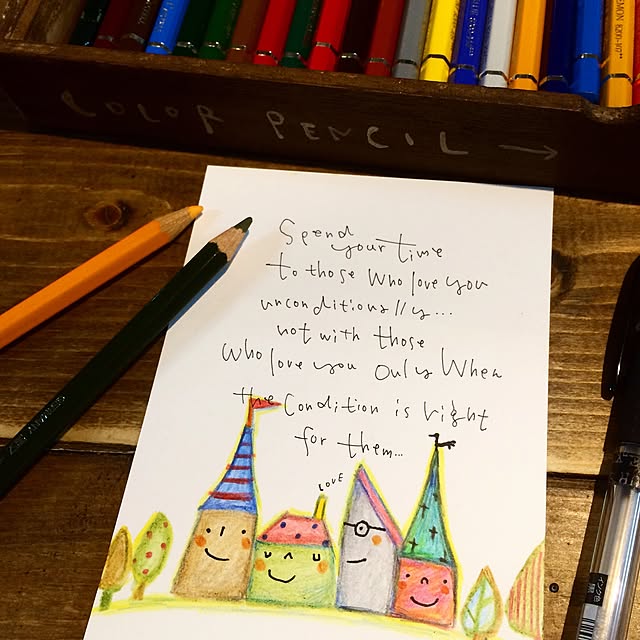 COLOR PENCIL →
Spend
your time
to those who love you
unconditionally...
not with those
who love you only when
the condition is right
for them...
LOVE